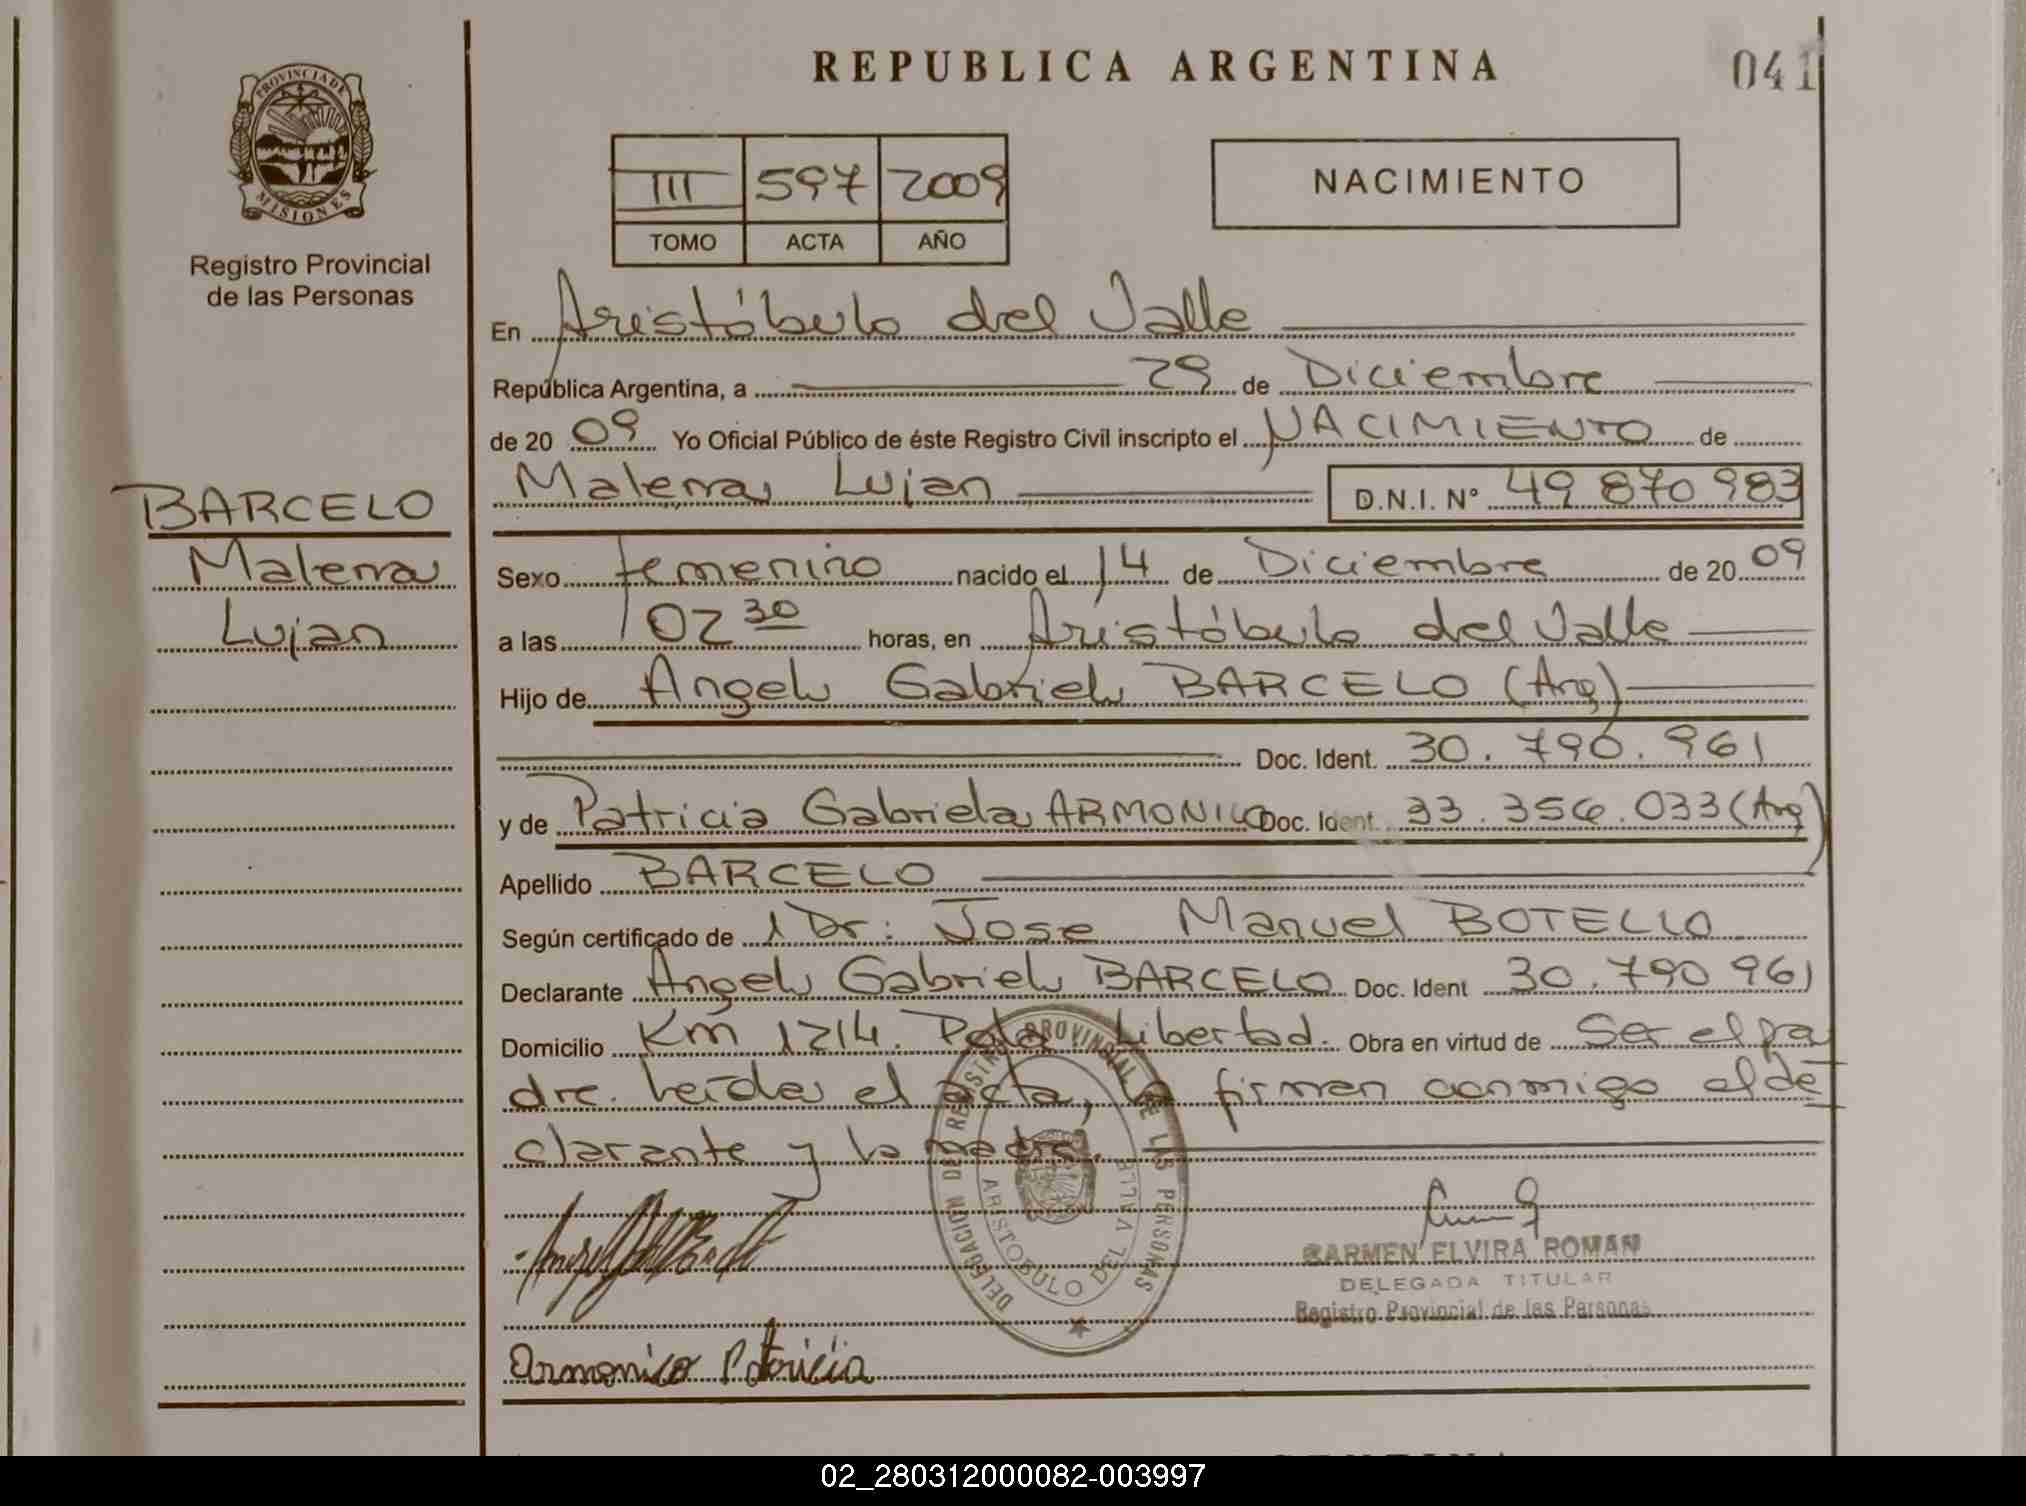 REPUBLICA ARGENTINA
041
PROVINCIA DE
MISIONES
Registro Provincial
de las Personas
III 597 2009
TOMO ACTA AÑO
NACIMIENTO
En Aristóbulo del Valle
República Argentina, a 29 de Diciembre
de 20 09 Yo Oficial Público de éste Registro Civil inscripto el NACIMIENTO de
Malena Lujan D.N.I. N° 49 870 983
BARCELO
Malena
Lujan
Sexo femenino nacido el 14 de Diciembre de 20 09
a las 02 30 horas, en Aristóbulo del Valle
Hijo de Angel Gabriel BARCELO (Arg)
Doc. Ident. 30.790.961
y de Patricia Gabriela ARMONICO Doc. Ident. 33.356.033 (Arg)
Apellido BARCELO
Según certificado de Dr: Jose Manuel BOTELLO
Declarante Angel Gabriel BARCELO Doc. Ident 30.790 961
Domicilio Km 1214. Pdo Libertad. Obra en virtud de Ser el pa
dre. Leída el acta, la firman conmigo el de
clarante y la madre.
DELEGACION DE REGISTRO PROVINCIAL DE LAS PERSONAS
ARISTOBULO DEL VALLE
CARMEN ELVIRA ROMAN
DELEGADA TITULAR
Registro Provincial de las Personas
Armonico Patricia
02_280312000082-003997